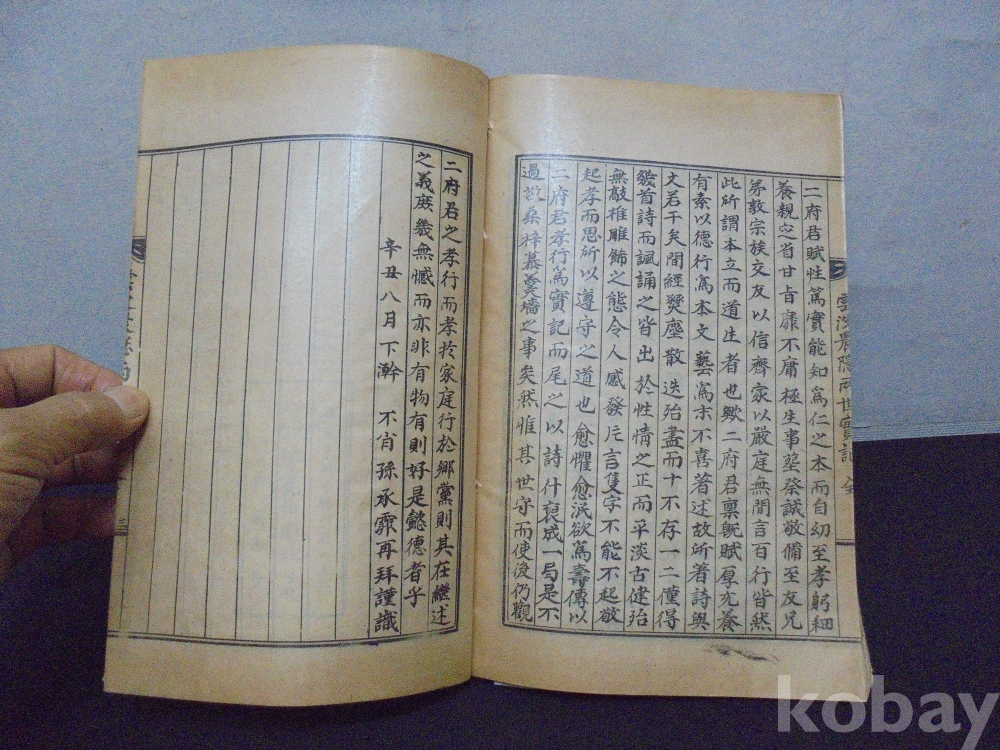 二府君賦性篤實能知爲仁之本而自幼至孝躬細
養親定省甘旨靡不庸極生事塟祭誠敬備至友兄
弟敦宗族交友以信齊家以嚴庭無間言百行皆然
此所謂本立而道生者也歟二府君稟旣賦厚充養
有素以德行爲本文藝爲末不喜著述故所著詩與
文若干矣間經燹塵散迭殆盡而十不存一二僅得
幾首詩而諷誦之皆出於性情之正而平淡古健殆
無敲椎雕飾之態令人感發片言隻字不能不起敬
起孝而思所以遵守之道也愈懼愈泯欲爲壽傳以
二府君孝行篤實記而尾之以詩什裒成一局是不
過敬桑梓慕羹墻之事矣然惟其世守而使後仍觀
雲溪農隱兩世實記 全
二府君之孝行而孝於家庭行於鄉黨則其在繼述
之義庶幾無憾而亦非有物有則好是懿德者乎
辛丑八月下澣 不肖孫承霢再拜謹識
三
kobay